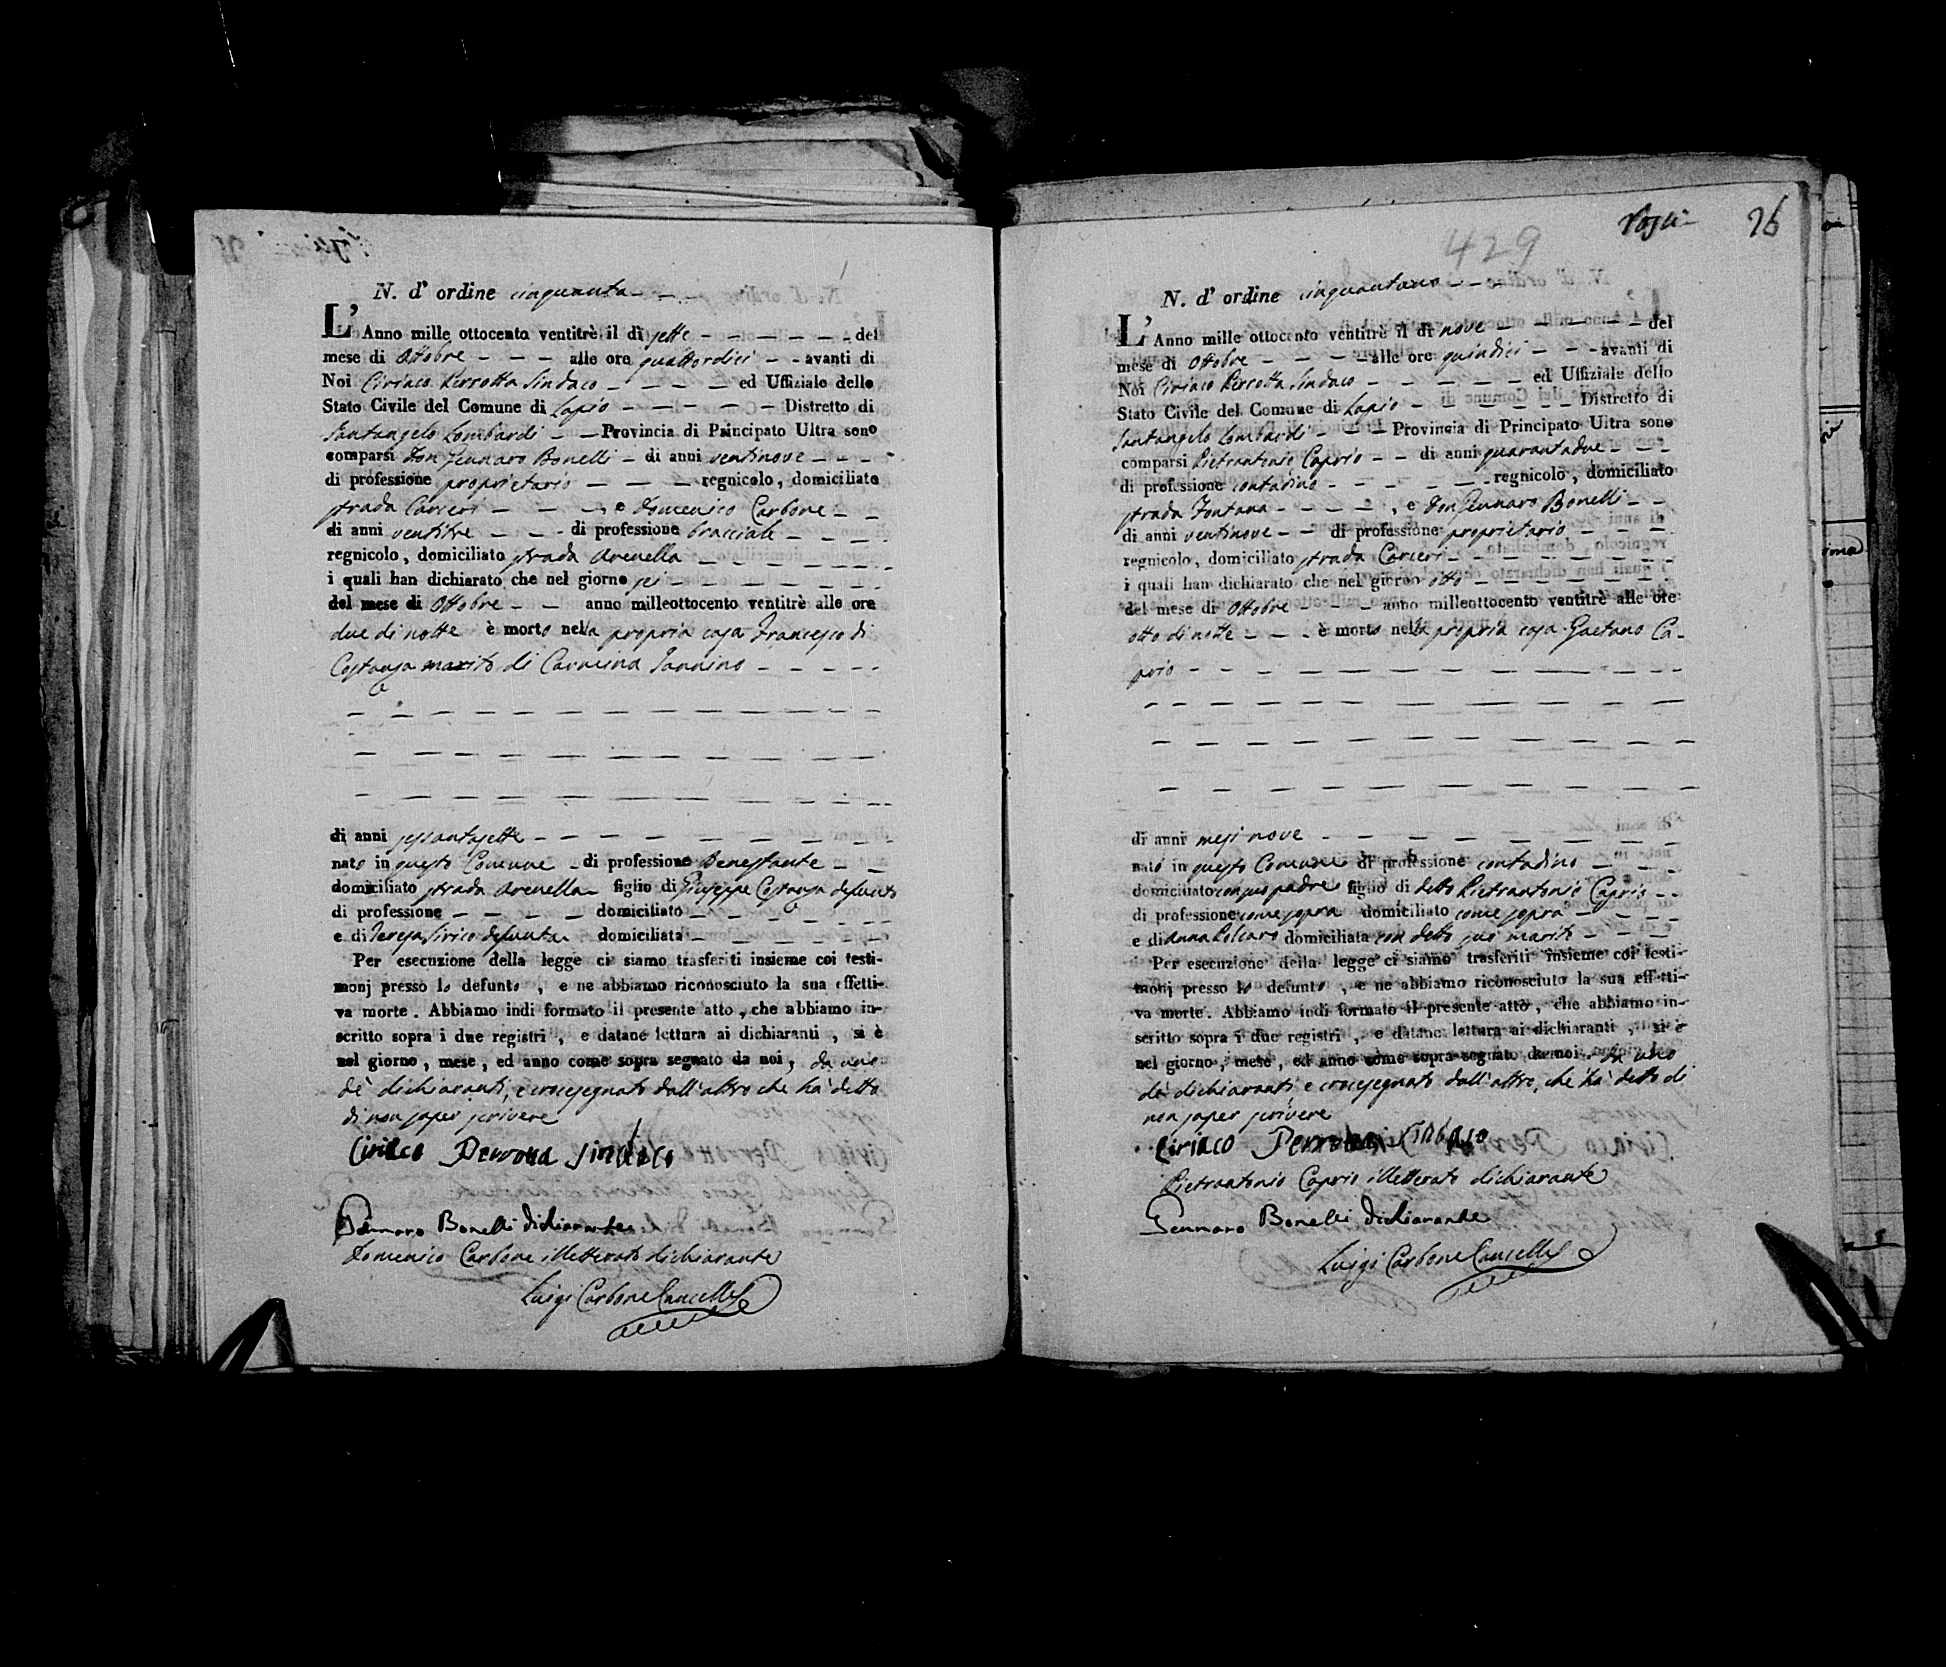 N. d' ordine cinquanta
L' Anno mille ottocento ventitrè il dì sette del
mese di Ottobre alle ore quattordici avanti di
Noi Ciriaco Perrotta Sindaco ed Uffiziale dello
Stato Civile del Comune di Lapio Distretto di
Santangelo Lombardi Provincia di Principato Ultra sono
comparsi Don Gennaro Bonelli di anni ventinove
di professione proprietario regnicolo, domiciliato
strada Carceri , e Domenico Carbone
di anni ventitre di professione bracciale
regnicolo, domiciliato strada Arenella
i quali han dichiarato che nel giorno sei
del mese di Ottobre anno milleottocento ventitrè alle ore
due di notte è morto nella propria casa Francesco di
Costanza marito di Carmina Iannino
di anni sessantasette
nato in questo Comune di professione Benestante
domiciliato strada Arenella figlio di Giuseppe Costanza defunto
di professione domiciliato
e di Teresa Sirico defunta domiciliata
Per esecuzione della legge ci siamo trasferiti insieme coi testi-
monj presso lo defunto , e ne abbiamo riconosciuto la sua effetti-
va morte. Abbiamo indi formato il presente atto, che abbiamo in-
scritto sopra i due registri , e datane lettura ai dichiaranti , si è
nel giorno, mese, ed anno come sopra segnato da noi, da uno
de' dichiaranti, e crocesegnato dall'altro che ha detto
di non saper scrivere
Ciriaco Perrotta Sindaco
Gennaro Bonelli dichiarante
Domenico Carbone illetterato dichiarante
Luigi Carbone Cancelle
429
26
N. d' ordine cinquantuno
L' Anno mille ottocento ventitrè il dì nove del
mese di Ottobre alle ore quindici avanti di
Noi Ciriaco Perrotta Sindaco ed Uffiziale dello
Stato Civile del Comune di Lapio Distretto di
Santangelo Lombardi Provincia di Principato Ultra sono
comparsi Pietrantonio Caprio di anni quarantadue
di professione contadino regnicolo, domiciliato
strada Fontana , e Don Gennaro Bonelli
di anni ventinove di professione proprietario
regnicolo, domiciliato strada Carceri
i quali han dichiarato che nel giorno otto
del mese di Ottobre anno milleottocento ventitrè alle ore
otto di notte è morto nella propria casa Gaetano Ca-
prio
di anni mesi nove
nato in questo Comune di professione contadino
domiciliato con suo padre figlio di detto Pietrantonio Caprio
di professione come sopra domiciliato come sopra
e di Anna Polcaro domiciliata con detto suo marito
Per esecuzione della legge ci siamo trasferiti insieme coi testi-
monj presso lo defunto , e ne abbiamo riconosciuto la sua effetti-
va morte. Abbiamo indi formato il presente atto, che abbiamo in-
scritto sopra i due registri , e datane lettura ai dichiaranti , si è
nel giorno, mese, ed anno come sopra segnato da noi da uno
de' dichiaranti, e crocesegnato dall'altro, che ha detto di
non saper scrivere
Ciriaco Perrotta Sindaco
Pietrantonio Caprio illetterato dichiarante
Gennaro Bonelli dichiarante
Luigi Carbone Cancelle